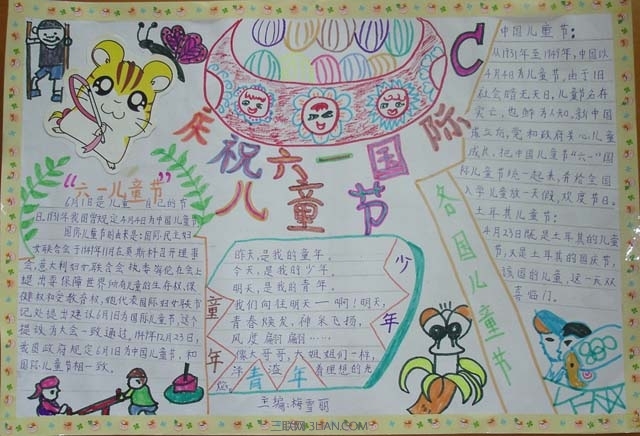 庆祝六一国际
儿童节
“六一儿童节”
6月1日是儿童自己的节
日,1931年我国曾规定4月4日为中国儿童节
国际儿童节的由来是:国际民主妇
女联合会于1949年11月在莫斯科召开理事
会,意大利妇女联合会执委会在会上
提出要保障世界所有儿童的生存权、保
健权和受教育权,她代表国际妇女联书
记处提出建议6月1日为国际儿童节,这个
提议为大会一致通过。1949年12月23日,
我政府规定6月1日为中国儿童节,和
国际儿童节相一致。
昨天,是我的童年。
今天,是我的少年。
明天,是我的青年。
我们向往明天——啊!明天,
青春焕发,神采飞扬,
风度翩翩……
像大哥哥,大姐姐们一样,
洋溢着理想的光
焰。
童年
少年
青年
主编:梅雪丽
C
各国儿童节
中国儿童节:
从1931年至1949年,中国以
4月4日为儿童节。由于旧
社会暗无天日,儿童名存
实亡,也鲜为人知。新中国
成立后,党和政府关心儿童
成长,把中国儿童节“六一”国
际儿童节统一起来,并给全国
入学儿童放一天假,欢度节日。
土耳其儿童节:
4月23日既是土耳其的儿童
节,又是土耳其的国庆节,
该国的儿童,这一天双
喜临门。
三联网3LIAN.COM